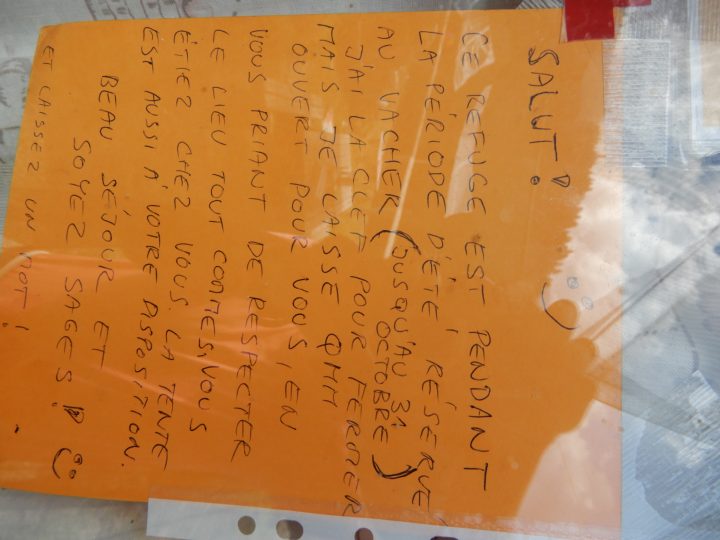 SALUT!
CE REFUGE EST PENDANT
LA PÉRIODE D'ÉTÉ RÉSERVÉ
AU VACHER (JUSQU'AU 31
OCTOBRE)
J'AI LA CLEF POUR FERMER
MAIS JE LAISSE QMM
OUVERT POUR VOUS, EN
VOUS PRIANT DE RESPECTER
LE LIEU TOUT COMME SI VOUS
ÉTIEZ CHEZ VOUS. LA TENTE
EST AUSSI À VOTRE DISPOSITION.
BEAU SÉJOUR ET
SOYEZ SAGES!
ET LAISSEZ UN MOT!